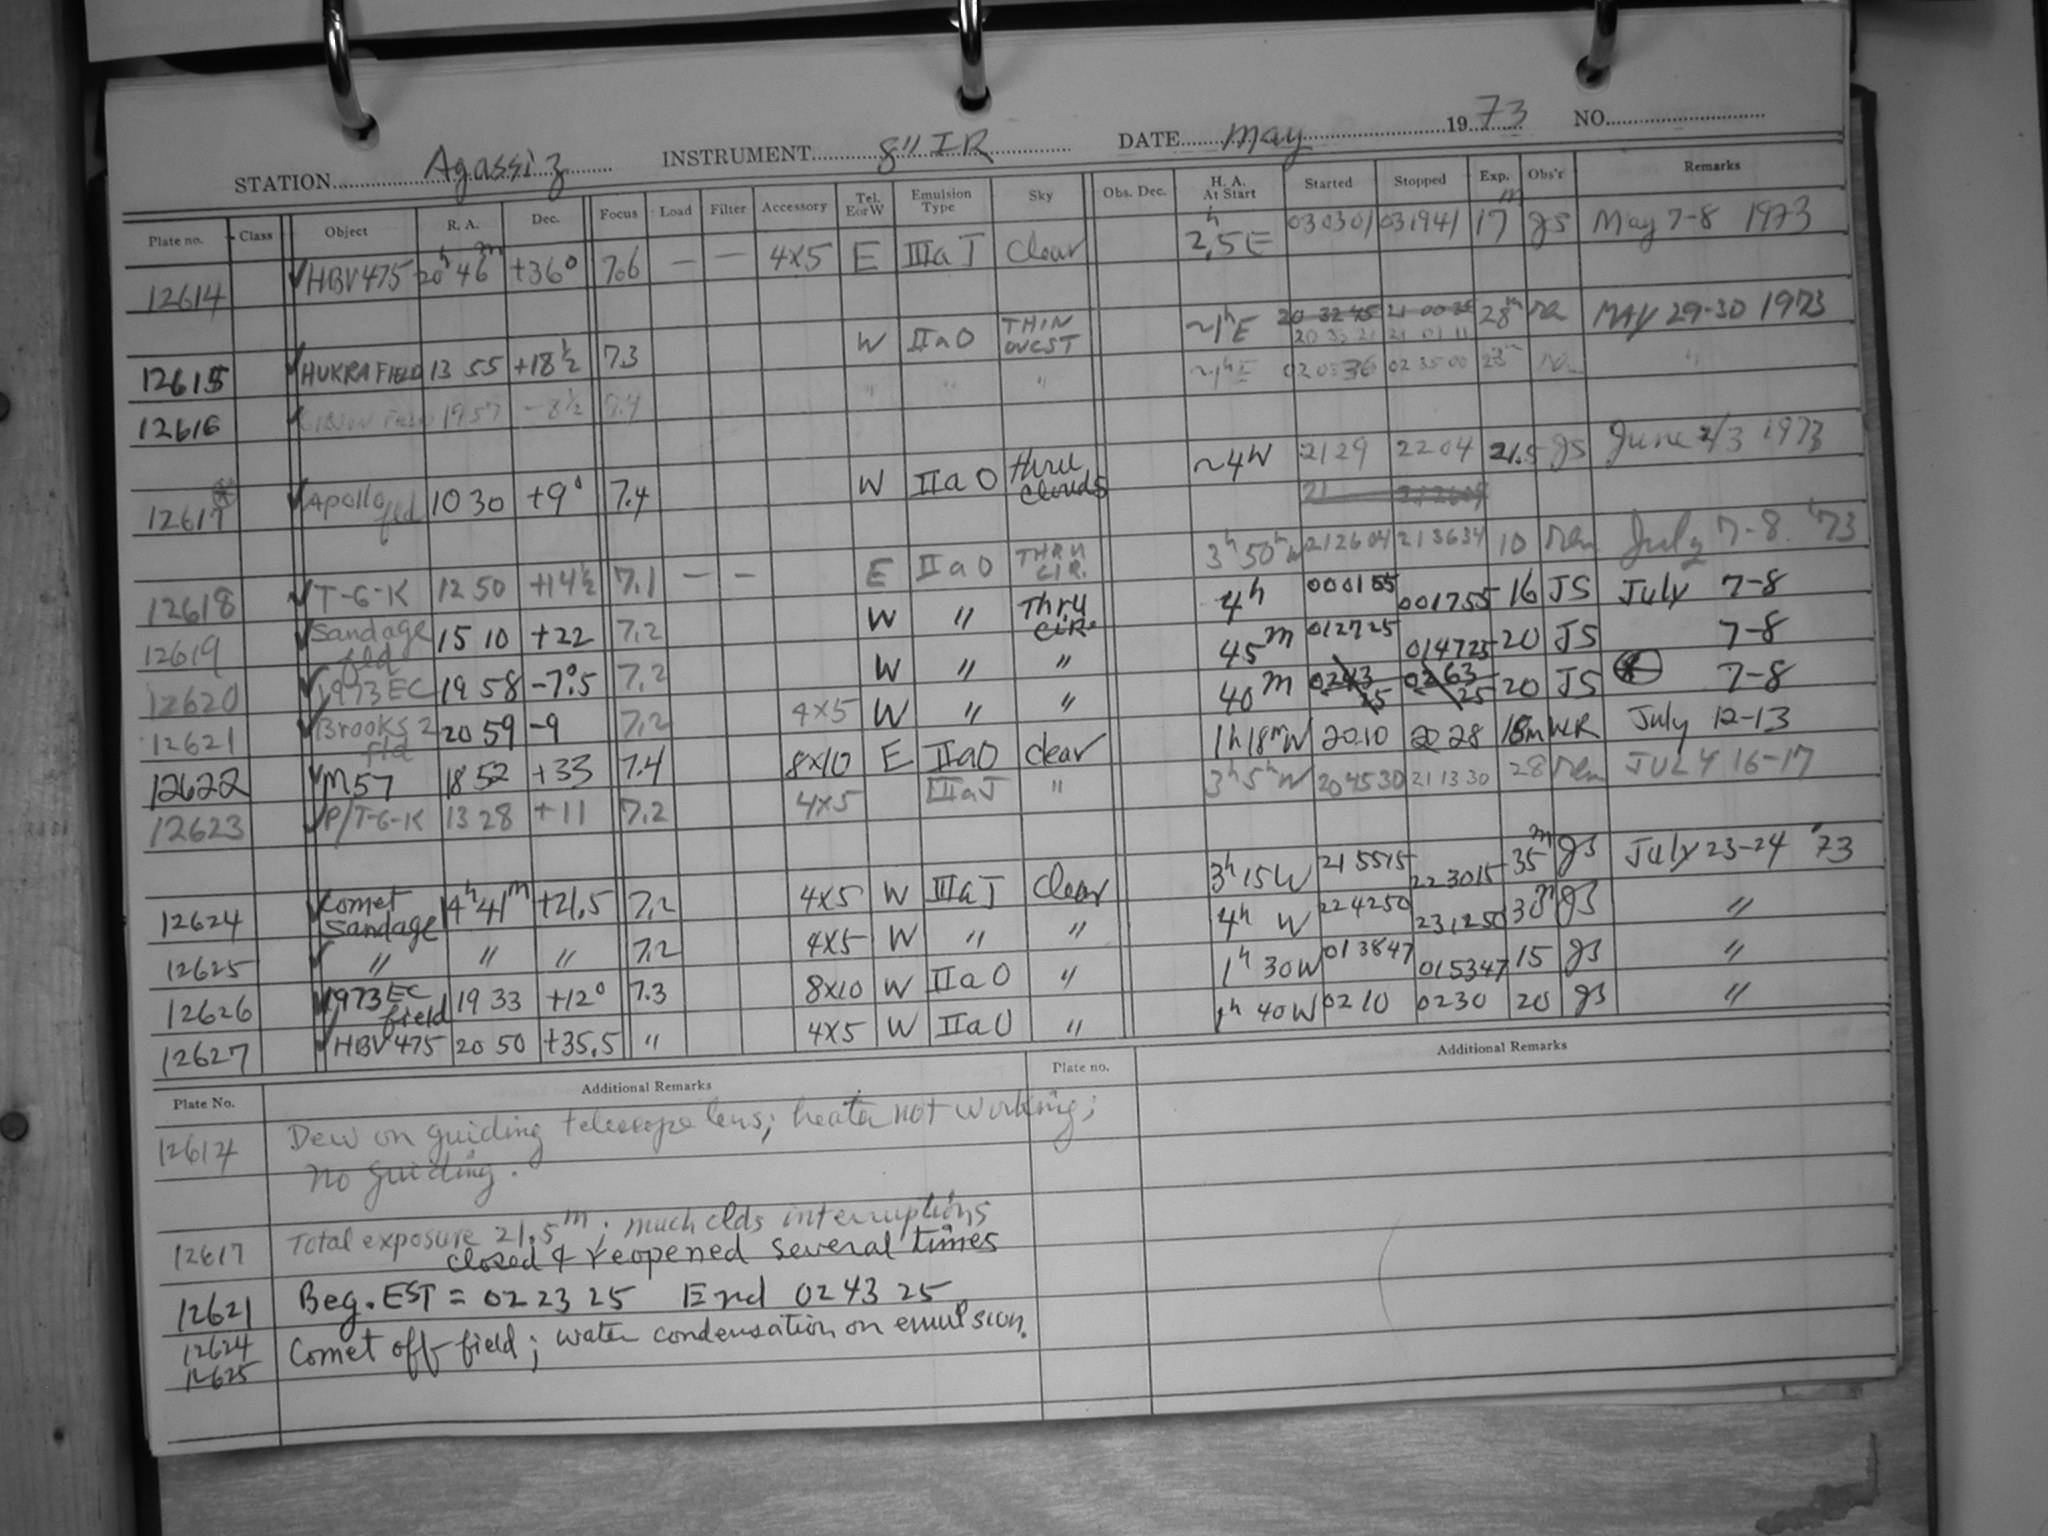 STATION Agassiz INSTRUMENT 8" IR DATE May 1973 NO.
Plate no. Class Object R. A. Dec. Focus Load Filter Accessory Tel. E or W Emulsion Type Sky Obs. Dec. H. A. At Start Started Stopped Exp. Obs'r Remarks
12614 ✓HBV475 20h 46m +36° 7.6 — — 4x5 E IIIaJ Clear 2.5 E 030301 031941 17m JS May 7-8 1973
12615 ✓HUKRA FIELD 13 55 +18½ 7.3 W IIaO THIN OVCST ~1h E 20 32 45 21 00 35 28m MAY 29-30 1973
20 33 21 21 01 11
12616 FIELD 19 57 -8½ 7.4 " " " ~1h E 02 35 00 "
12617 ✓Apollo fld 10 30 +9° 7.4 W IIaO thru clouds ~4W 2129 2204 21.5 JS June 2/3 1973
21 212604
12618 ✓T-G-K 12 50 +14½ 7.1 — — E IIaO THRU CIR. 3h 50m W 212604 213634 10 July 7-8 '73
12619 ✓Sandage fld 15 10 +22 7.2 W " Thru CIR. 4h 000155 001755 16 JS July 7-8
12620 ✓1973 EC 19 58 -7°.5 7.2 W " " 45m 012725 014725 20 JS 7-8
12621 ✓Brooks 2 fld 20 59 -9 7.2 4x5 W " " 40m 0243 25 0263 25 20 JS 7-8
12622 ✓M57 18 52 +33 7.4 8x10 E IIaO clear 1h 18m W 20.10 20 28 18m WR July 12-13
12623 ✓P/T-G-K 13 28 +11 7.2 4x5 IIIaJ " 3h 5m W 204530 211330 28 JULY 16-17
12624 ✓Comet Sandage 14h 41m +21.5 7.2 4x5 W IIIaJ Clear 3h 15W 215515 223015 35m JS July 23-24 '73
12625 ✓ " " " 7.2 4x5 W " " 4h W 224250 231250 30m JS "
12626 ✓1973 EC field 19 33 +12° 7.3 8x10 W IIaO " 1h 30W 013847 015347 15 JS "
12627 ✓HBV 475 20 50 +35.5 " 4x5 W IIaO " 1h 40W 0210 0230 20 JS "
Plate No. Additional Remarks Plate no. Additional Remarks
12614 Dew on guiding telescope lens; heater not working;
No guiding.
12617 Total exposure 21.5m; much clds interruptions
closed & reopened several times
12621 Beg. EST = 02 23 25 End 02 43 25
12624 Comet off field; water condensation on emulsion.
12625